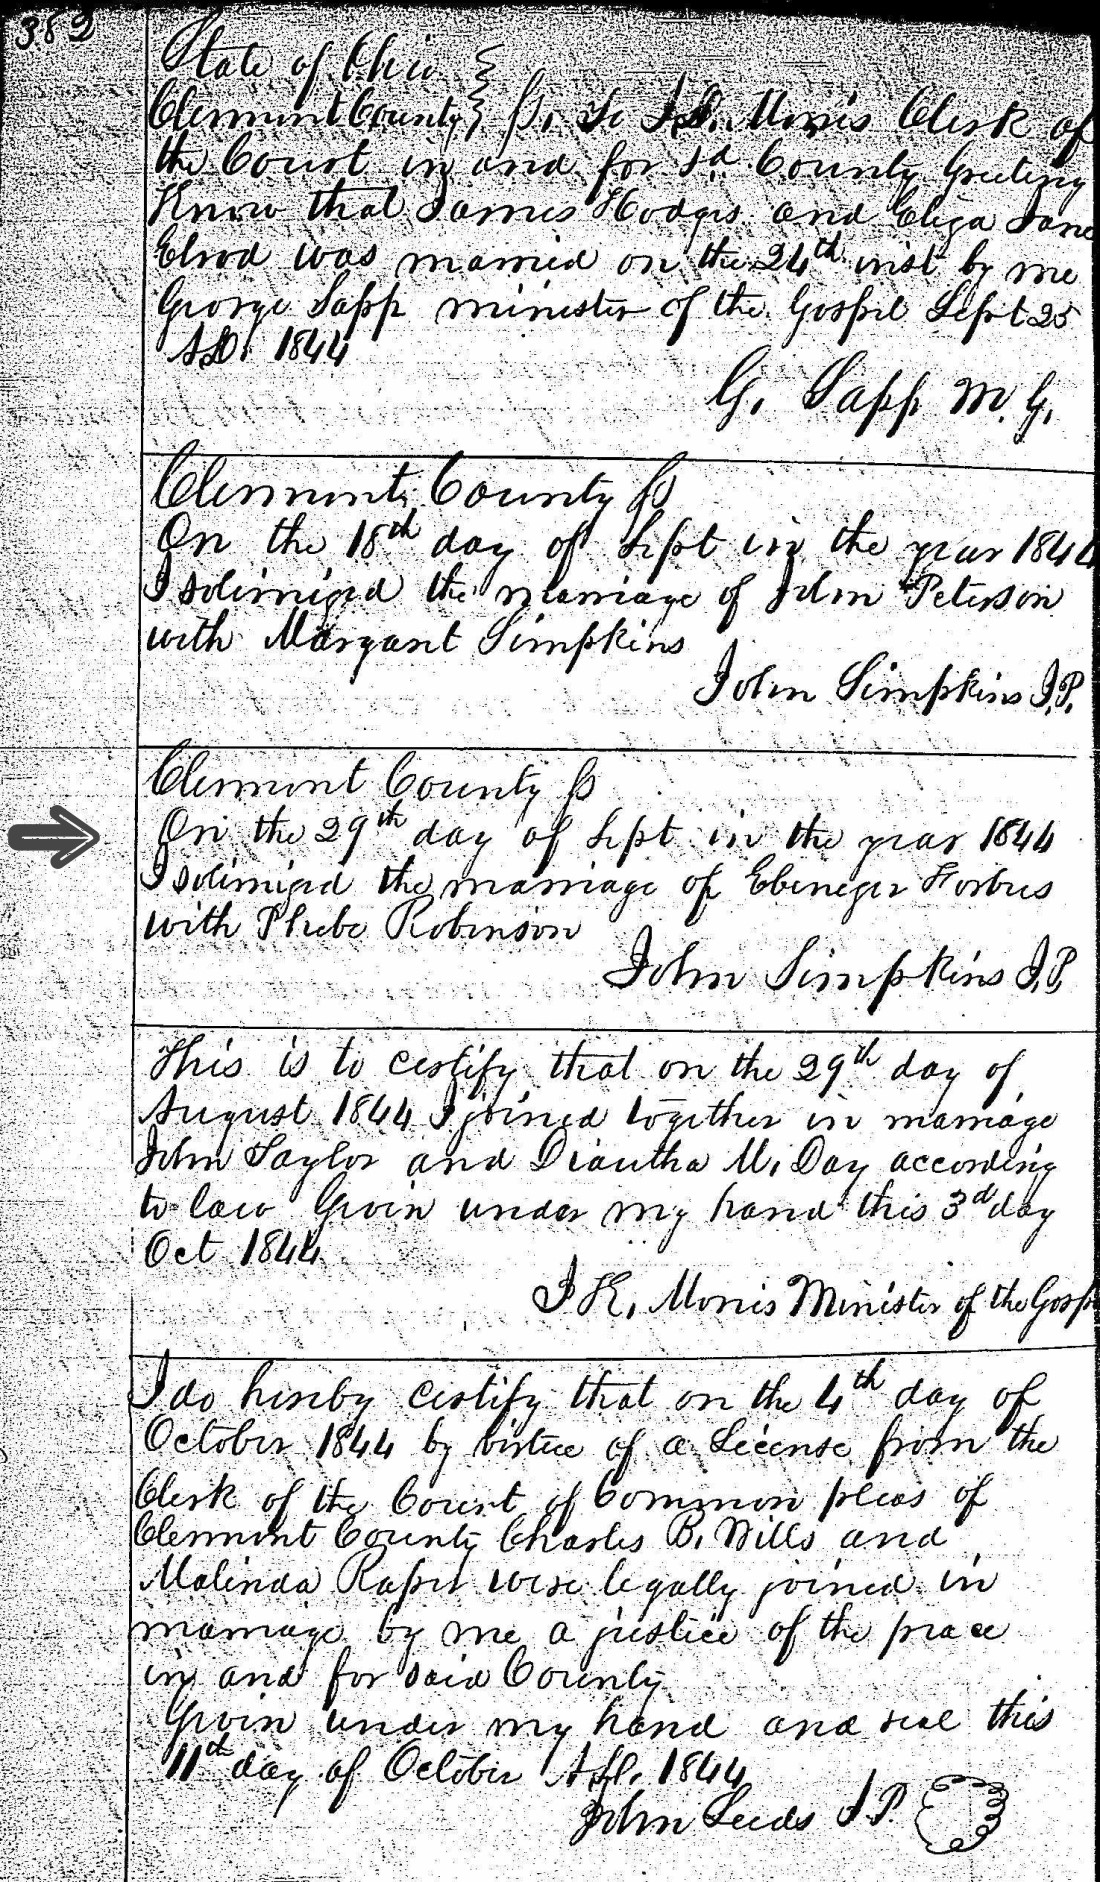 382
State of Ohio
Clermont County } ss. To J. D. Morris Clerk of
the Court in and for sd. County Greeting
Know that James Hodges and Eliza Jane
Elrod was married on the 24th inst by me
George Sapp minister of the Gospel Sept 25
A.D. 1844
G. Sapp M. G.
Clermont County ss
On the 18th day of Sept in the year 1844
I solemnized the marriage of John Peterson
with Margaret Simpkins
John Simpkins J.P.
Clermont County ss
On the 29th day of Sept in the year 1844
I solemnized the marriage of Ebenezer Forbus
with Phebe Robinson
John Simpkins J.P.
This is to certify that on the 29th day of
August 1844 I joined together in marriage
John Taylor and Diantha M. Day according
to law Given under my hand this 3d day
Oct 1844
I K. Morris Minister of the Gosp
I do hereby certify that on the 4th day of
October 1844 by virtue of a License from the
Clerk of the Court of Common pleas of
Clermont County Charles B. Wills and
Malinda Raper were legally joined in
marriage by me a justice of the peace
in and for said County
Given under my hand and seal this
11th day of October A.D. 1844
John Leeds J.P.